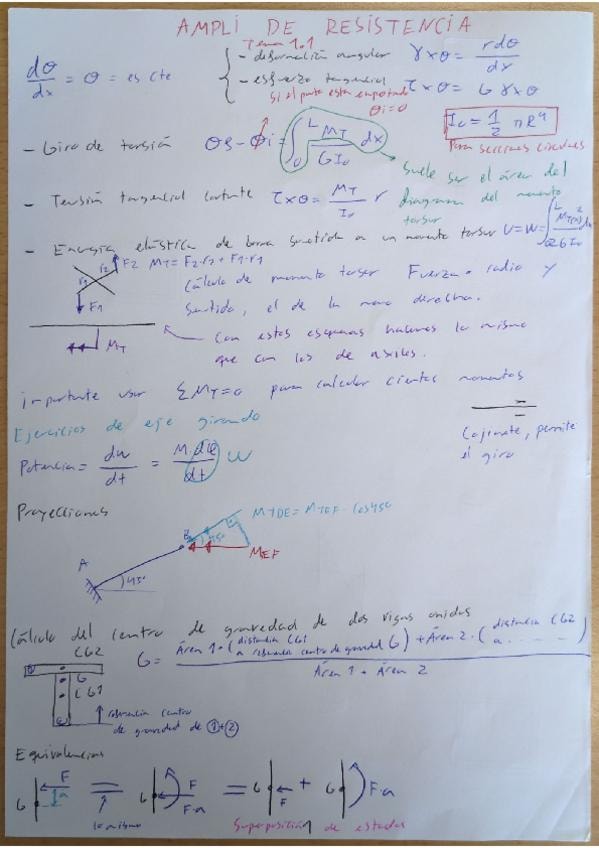 AMPLI DE RESISTENCIA
Tema 1.1
dθ/dx = θ = es cte
- deformación angular γxθ = rdθ/dx
- esfuerzo tangencial τxθ = G γxθ
Si el punto esta empotrado θi=0
- Giro de torsión θs - θi = ∫₀ᴸ MT/GIo dx
Io = 1/2 πR⁴
Para secciones circulares
Suele ser el área del
diagrama del momento
torsor
- Tensión tangencial cortante τxθ = MT/Io r
- Energía elástica de barra sometida a un momento torsor U=W=∫₀ᴸ MT(x)²/2GIo dx
F2 r2 r1 F1 MT = F2·r2 + F1·r1
Cálculo de momento torsor Fuerza · radio y
Sentido, el de la mano derecha.
MT
Con estos esquemas hacemos lo mismo
que con los de axiles.
importante usar ΣMT=0 para calcular ciertos momentos
Ejercicios de eje girando
Potencia = dw/dt = M·dφ/dt ω
Cojinete, permite
el giro
Proyecciones
MTDE = MTEF · cos45º
A 45º B 45º MEF
Cálculo del centro de gravedad de dos vigas unidas
CG2
G
CG1
G = Área 1 · (distancia CG1 a referencia centro de gravedad G) + Área 2 · (distancia CG2 a ......) / Área 1 + Área 2
referencia centro
de gravedad de ①+②
Equivalencias
G F a = G F F·a = G F + G F·a
lo mismo
Superposición de estados